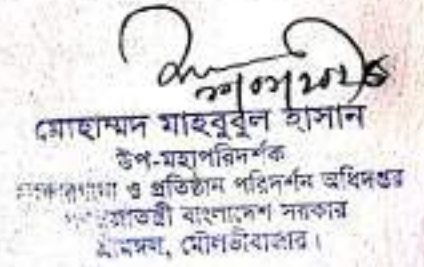 মোহাম্মদ মাহবুবুল হাসান
উপ-মহাপরিদর্শক
ও প্রতিষ্ঠান পরিদর্শন অধিদপ্তর
বাংলাদেশ সরকার
শ্রীমঙ্গল, মৌলভীবাজার।